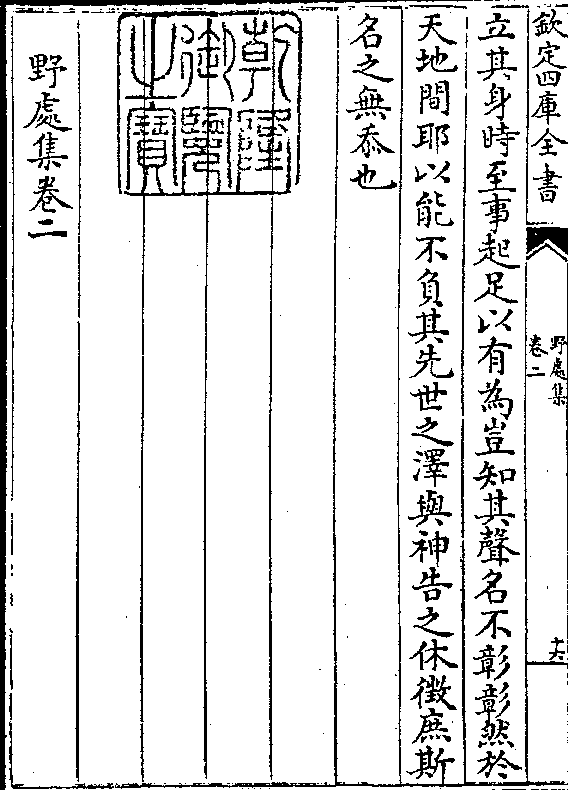 欽定四庫全書
野處集
卷二
十六
立其身時至事起足以有為豈知其聲名不彰彰然於
天地間耶以能不負其先世之澤與神告之休徴庶斯
名之無忝也
乾隆
御覽
之寶
野處集卷二